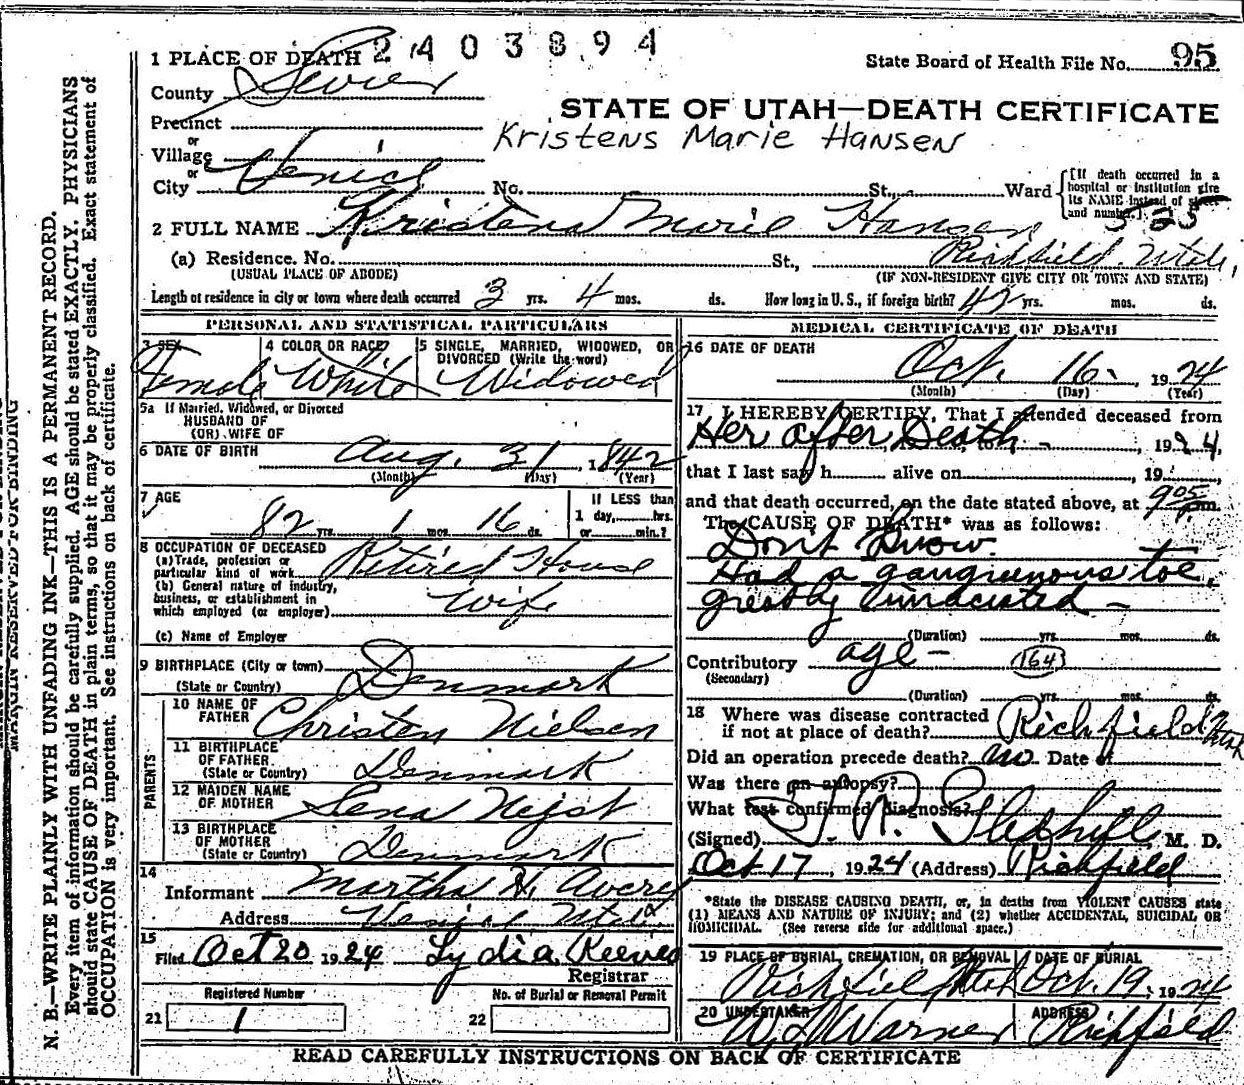 2403894
1 PLACE OF DEATH
State Board of Health File No. 95
County Sevier
STATE OF UTAH—DEATH CERTIFICATE
Precinct
Kristens Marie Hansen
or
Village
or
City Venice No. St., Ward
[If death occurred in a
hospital or institution give
its NAME instead of street
and number.]
525
2 FULL NAME Kristena Marie Hansen
(a) Residence. No. St., Richfield Utah,
(USUAL PLACE OF ABODE) (IF NON-RESIDENT GIVE CITY OR TOWN AND STATE)
Length of residence in city or town where death occurred 3 yrs. 4 mos. ds. How long in U.S., if foreign birth? 42 yrs. mos. ds.
PERSONAL AND STATISTICAL PARTICULARS
3 SEX
Female
4 COLOR OR RACE
White
5 SINGLE, MARRIED, WIDOWED, OR
DIVORCED (Write the word)
Widowed
5a If Married, Widowed, or Divorced
HUSBAND OF
(OR) WIFE OF
6 DATE OF BIRTH Aug. 31, 1842
(Month) (Day) (Year)
7 AGE
82 yrs. 1 mos. 16 ds.
If LESS than
1 day, hrs.
or min.?
8 OCCUPATION OF DECEASED
(a) Trade, profession or
particular kind of work Retired House
(b) General nature of industry,
business, or establishment in
which employed (or employer) Wife
(c) Name of Employer
9 BIRTHPLACE (City or town)
(State or Country) Denmark
PARENTS
10 NAME OF
FATHER Christen Nielsen
11 BIRTHPLACE
OF FATHER
(State or Country) Denmark
12 MAIDEN NAME
OF MOTHER Lena Nejst
13 BIRTHPLACE
OF MOTHER
(State or Country) Denmark
14
Informant Martha H. Avery
Address Venice Utah
15
Filed Oct 20 1924 Lydia Reeves
Registrar
Registered Number
21 1
No. of Burial or Removal Permit
22
MEDICAL CERTIFICATE OF DEATH
16 DATE OF DEATH
Oct. 16, 1924
(Month) (Day) (Year)
17 I HEREBY CERTIFY, That I attended deceased from
Her after Death - , 1924,
that I last saw h alive on , 19
and that death occurred, on the date stated above, at 9 05 pm.
The CAUSE OF DEATH* was as follows:
Dont Know.
Had a gangrenous toe.
greatly
(Duration) yrs. mos. ds.
Contributory age - 164
(Secondary)
(Duration) yrs. mos. ds.
18 Where was disease contracted
if not at place of death? Richfield Utah
Did an operation precede death? no Date of
Was there an autopsy?
What test confirmed diagnosis?
(Signed) M. D.
Oct 17, 1924 (Address) Richfield
*State the DISEASE CAUSING DEATH, or, in deaths from VIOLENT CAUSES state
(1) MEANS AND NATURE OF INJURY; and (2) whether ACCIDENTAL, SUICIDAL OR
HOMICIDAL. (See reverse side for additional space.)
19 PLACE OF BURIAL, CREMATION, OR REMOVAL
Richfield Utah
DATE OF BURIAL
Oct. 19, 1924
20 UNDERTAKER
Warner
ADDRESS
Richfield
READ CAREFULLY INSTRUCTIONS ON BACK OF CERTIFICATE
MARGIN RESERVED FOR BINDING
N. B.—WRITE PLAINLY WITH UNFADING INK—THIS IS A PERMANENT RECORD.
Every item of information should be carefully supplied. AGE should be stated EXACTLY. PHYSICIANS
should state CAUSE OF DEATH in plain terms, so that it may be properly classified. Exact statement of
OCCUPATION is very important. See instructions on back of certificate.